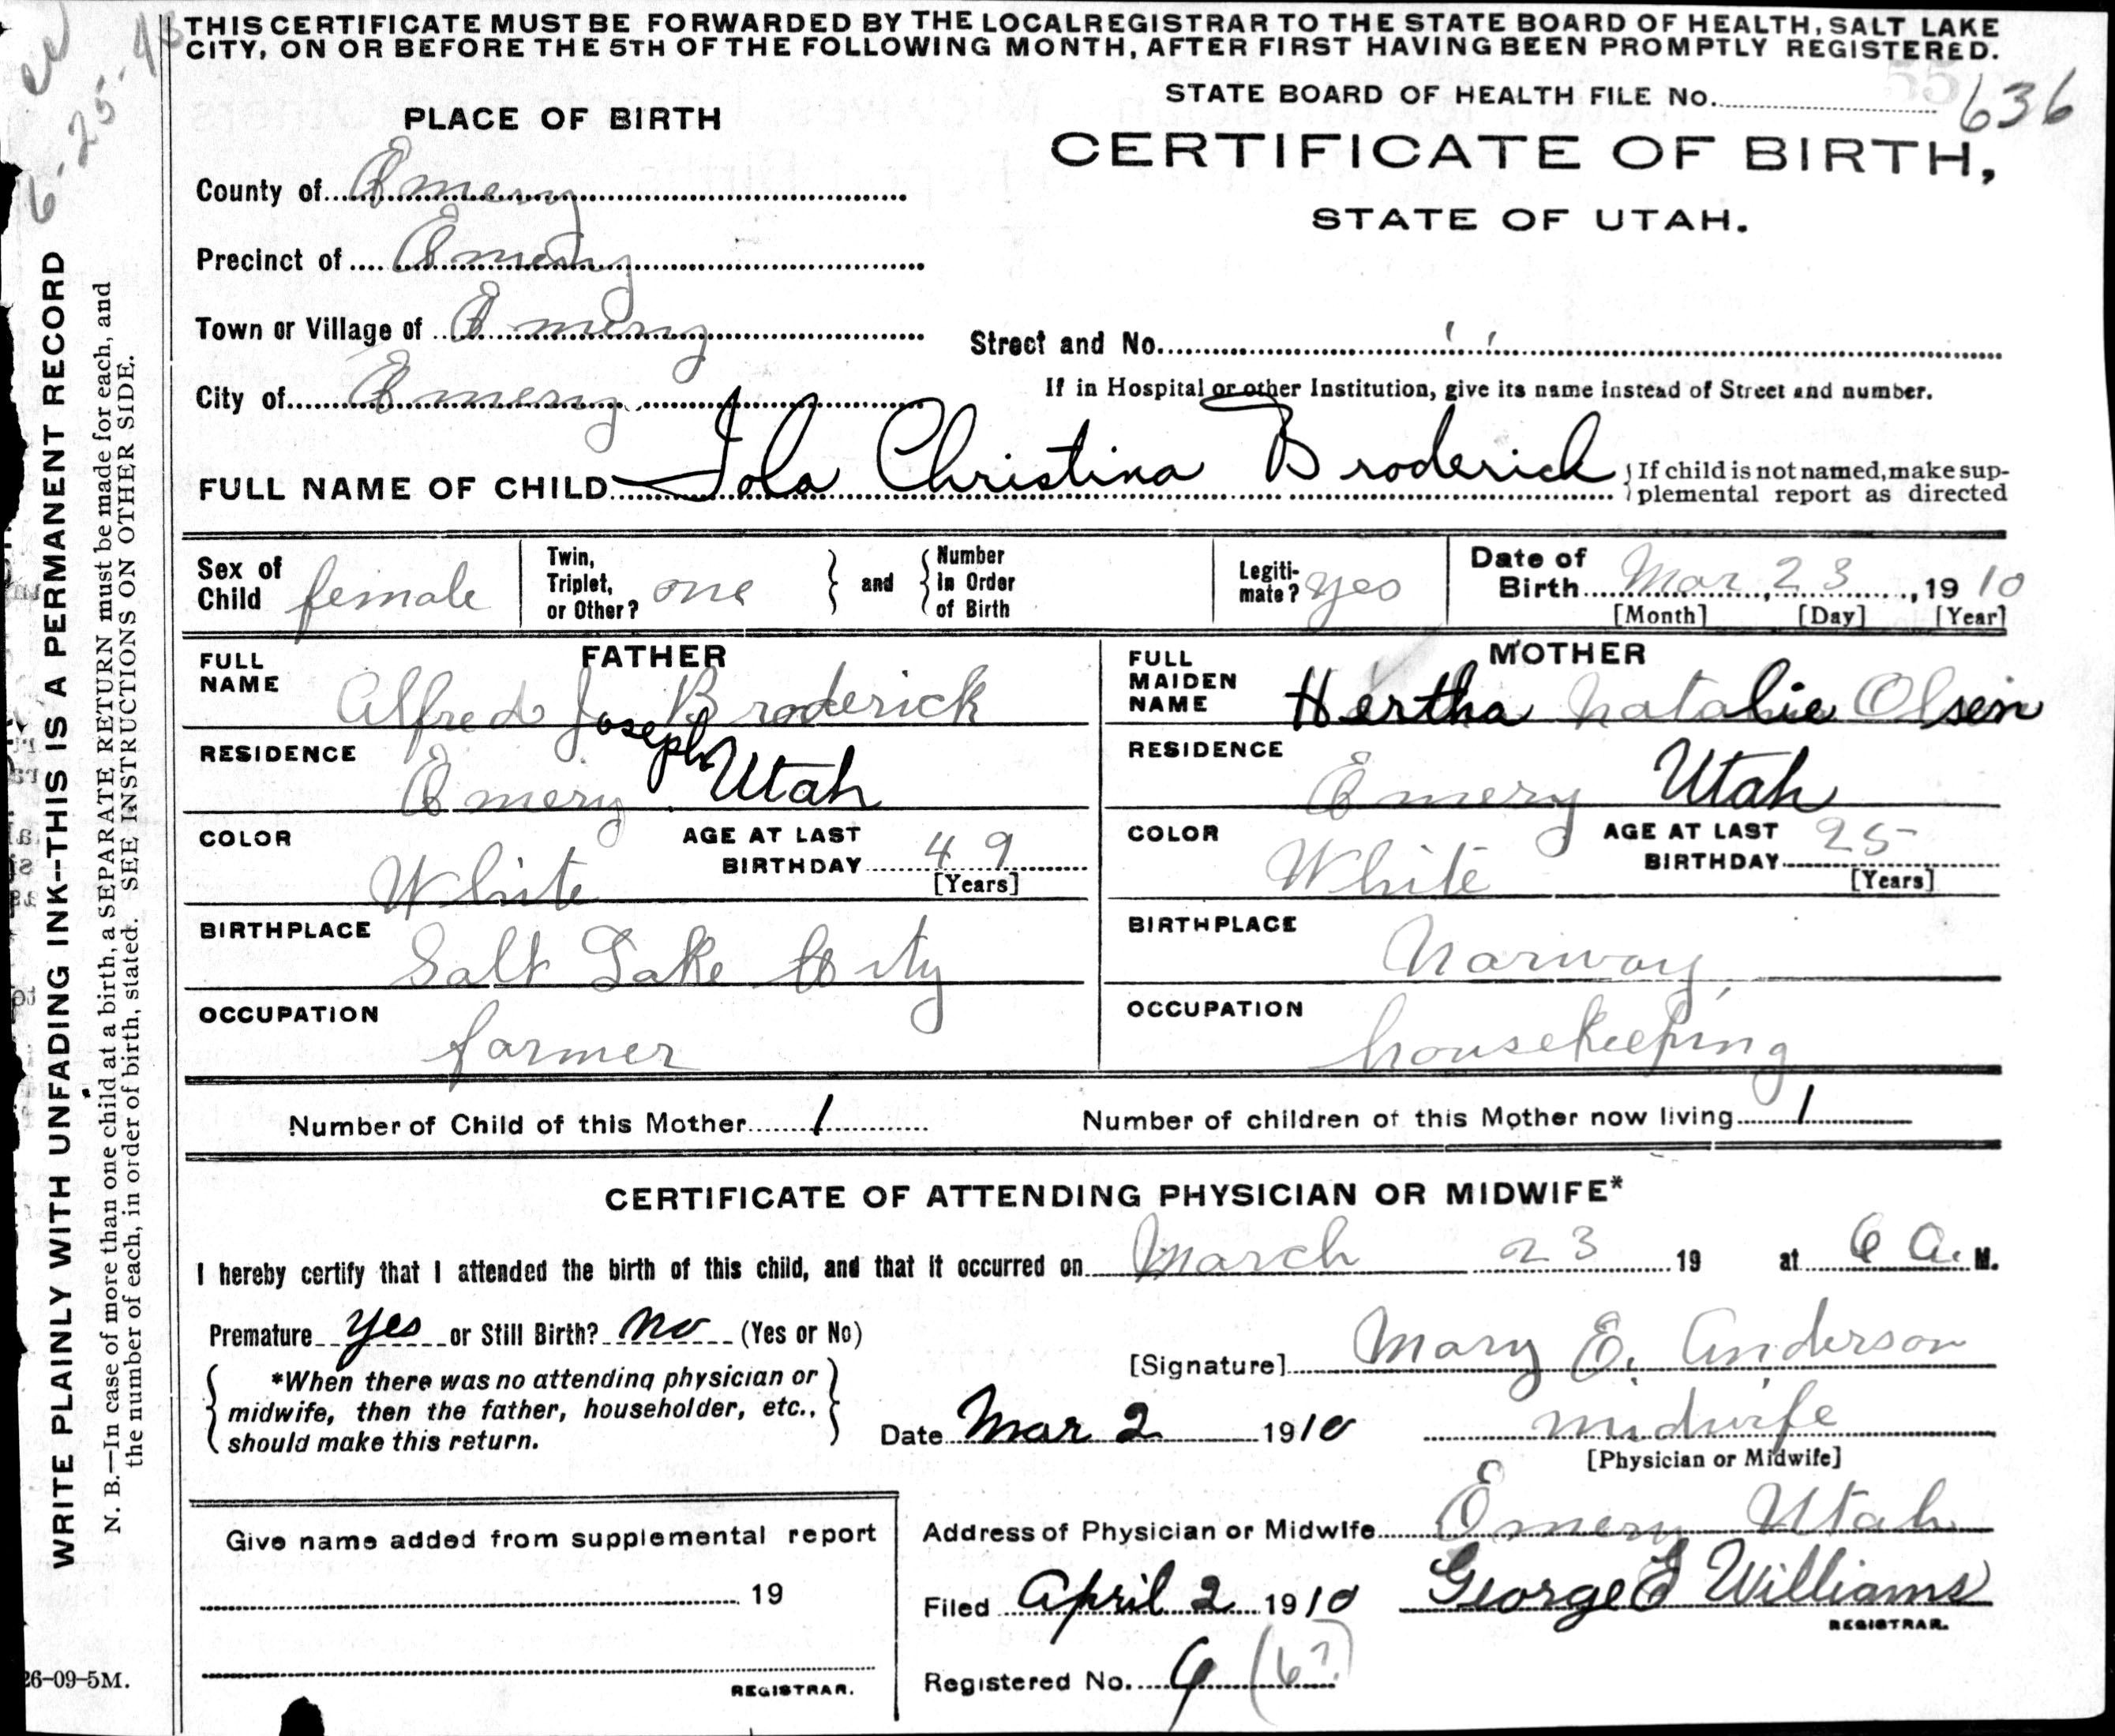 THIS CERTIFICATE MUST BE FORWARDED BY THE LOCAL REGISTRAR TO THE STATE BOARD OF HEALTH, SALT LAKE
CITY, ON OR BEFORE THE 5TH OF THE FOLLOWING MONTH, AFTER FIRST HAVING BEEN PROMPTLY REGISTERED.
6-25-43
STATE BOARD OF HEALTH FILE No. 636
PLACE OF BIRTH
CERTIFICATE OF BIRTH,
STATE OF UTAH.
County of Emery
Precinct of Emery
Town or Village of Emery
Street and No.
City of Emery
If in Hospital or other Institution, give its name instead of Street and number.
FULL NAME OF CHILD Iola Christina Broderick
If child is not named, make sup-
plemental report as directed
Sex of Child female
Twin, Triplet, or Other? one and Number in Order of Birth
Legiti-mate? yes
Date of Birth Mar, 23, 1910
[Month] [Day] [Year]
FATHER
FULL NAME Alfred Joseph Broderick
RESIDENCE Emery Utah
COLOR White
AGE AT LAST BIRTHDAY 49
[Years]
BIRTHPLACE Salt Lake City
OCCUPATION farmer
MOTHER
FULL MAIDEN NAME Hertha Natalie Olsen
RESIDENCE Emery Utah
COLOR White
AGE AT LAST BIRTHDAY 25
[Years]
BIRTHPLACE Norway
OCCUPATION housekeeping
Number of Child of this Mother 1
Number of children of this Mother now living 1
CERTIFICATE OF ATTENDING PHYSICIAN OR MIDWIFE*
I hereby certify that I attended the birth of this child, and that it occurred on March 23 19 at 6 A. M.
Premature yes or Still Birth? no (Yes or No)
*When there was no attending physician or
midwife, then the father, householder, etc.,
should make this return.
[Signature] Mary E. Anderson
Date Mar 2 1910
midwife
[Physician or Midwife]
Give name added from supplemental report
19
REGISTRAR.
Address of Physician or Midwife Emery Utah
Filed April 2 1910 George E Williams
REGISTRAR.
Registered No. 9 (6?)
WRITE PLAINLY WITH UNFADING INK--THIS IS A PERMANENT RECORD
N. B.—In case of more than one child at a birth, a SEPARATE RETURN must be made for each, and
the number of each, in order of birth, stated. SEE INSTRUCTIONS ON OTHER SIDE.
26-09-5M.